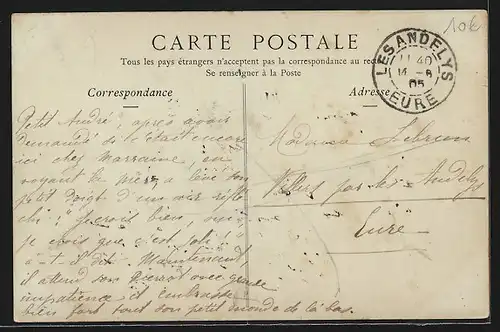 10k
CARTE POSTALE
Tous les pays étrangers n'acceptent pas la correspondance au
Se renseigner à la Poste
Correspondance
Adresse
LES ANDELYS
11 40
14 - 8
05
EURE
Petit André, après avoir
demandé si c'était encore
ici chez Marraine, en
voyant la mère a levé son
petit doigt d'un air réflé
chi "Je crois bien,
je crois que c'est joli"
a-t-il dit. Maintenant
il attend son Pierrot avec grande
impatience, et embrasse
bien fort tout son petit monde de là bas.
Madame Lebrun
par les Andelys
Eure